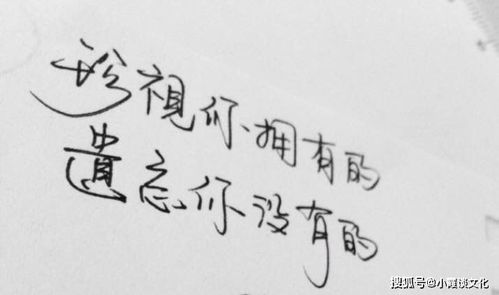 珍視你拥有的
遗忘你没有的
搜狐号@小霞谈文化